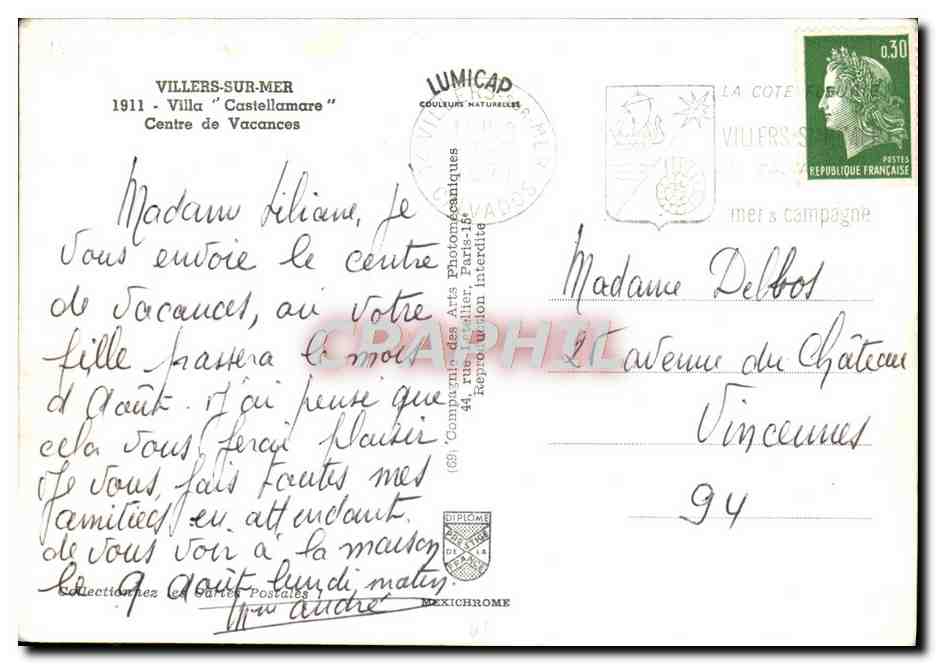 VILLERS-SUR-MER
1911 - Villa "Castellamare"
Centre de Vacances
Madame Liliane, Je
vous envoie le centre
de vacances, où votre
fille passera le mois
d'Août. J'ai pensé que
cela vous ferai plaisir
Je vous fais toutes mes
amitiées en attendant
de vous voir à la maison
le 9 août lundi matin.
Mme andré
Collectionnez les Cartes Postales
LUMICAP
COULEURS NATURELLES
14 VILLERS-SUR-MER
CALVADOS
(69) Compagnie des Arts Photomécaniques
44, rue Letellier, Paris-15e
Reproduction interdite
DIPLOME
PRESTIGE
DE LA
FRANCE
MEXICHROME
LA COTE FLEURIE
VILLERS-S
mer & campagne
0,30
POSTES
REPUBLIQUE FRANÇAISE
Madame Delbos
25 avenue du Château
Vincennes
94
CRAPHIL